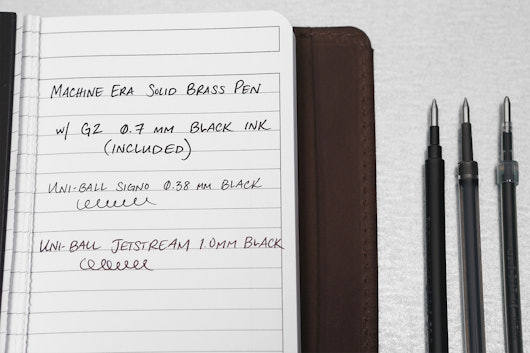 MACHINE ERA SOLID BRASS PEN
W/ G2 0.7 MM BLACK INK
(INCLUDED)
UNI-BALL SIGNO 0.38 MM BLACK
UNI-BALL JETSTREAM 1.0MM BLACK